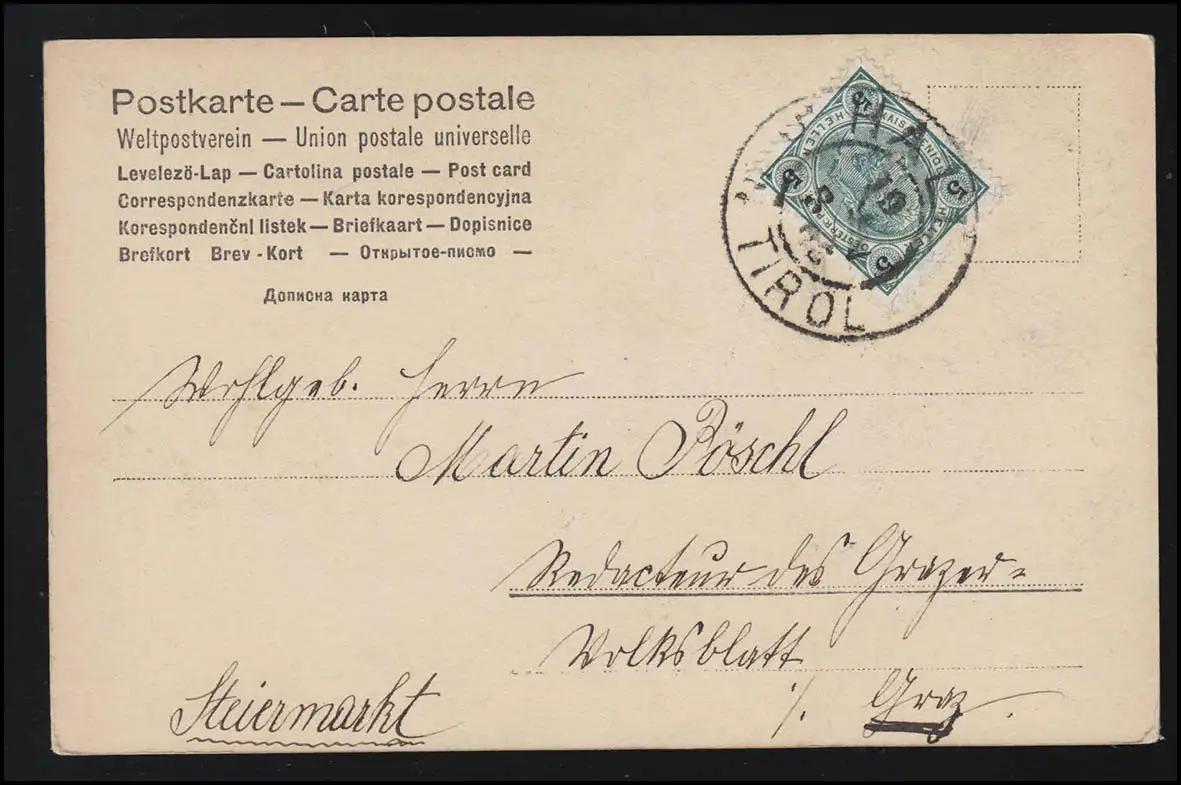 Postkarte — Carte postale
Weltpostverein — Union postale universelle
Levelezö-Lap — Cartolina postale — Post card
Correspondenzkarte — Karta korespondencyjna
Korespondenčnl listek — Briefkaart — Dopisnice
Brefkort Brev-Kort — Открытое-письмо —
Дописна карта
HALL
TIROL
5 HELLER 5
Wohlgeb. Herrn
Martin Pöschl
Redacteur des Grazer-
Volksblatt
Steiermarkt
/. Graz.